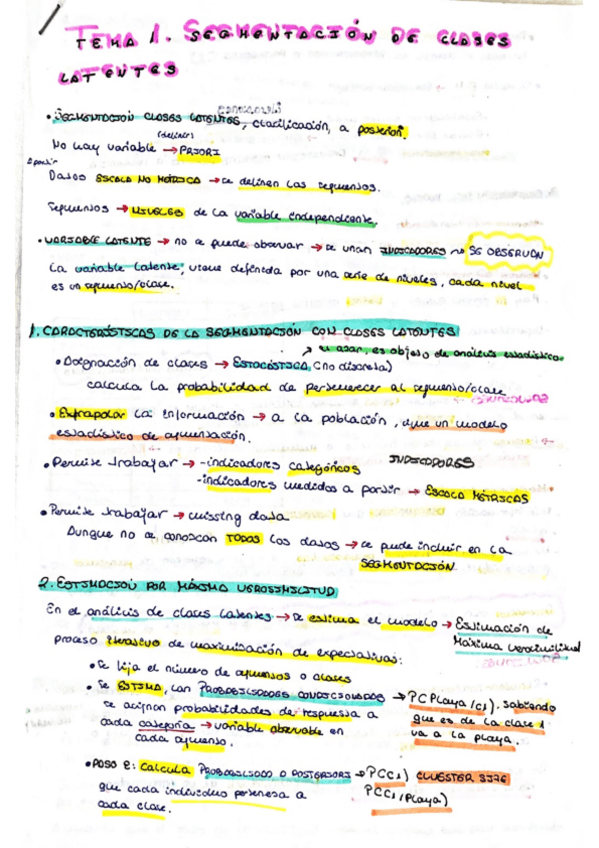 TEMA 1. SEGMENTACIÓN DE CLASES
LATENTES
• SEGMENTACION CLASES LATENTES, clasificación, a posteriori.
(definir)
No hay variable → PRIORI
A partir
Datos ESCALA NO MÉTRICA → se definen los segmentos.
Segmentos → NIVELES de la variable independiente.
• VARIABLE LATENTE → no se puede observar → se usan INDICADORES → SE OBSERVAN
La variable latente, viene definida por una serie de niveles, cada nivel
es un segmento/clase.
1. CARACTERÍSTICAS DE LA SEGMENTACIÓN CON CLASES LATENTES
↗ al azar, es objeto de análisis estadístico.
• Asignación de clases → ESTOCÁSTICA (no discreta)
calcula la probabilidad de pertenecer al segmento/clase
• Extrapolar la información → a la población, que un modelo
estadístico de segmentación.
• Permite trabajar → -indicadores categóricos INDICADORES
-indicadores medidos a partir → ESCALA MÉTRICAS
• Permite trabajar → missing data
Aunque no se conozcan TODOS los datos → se puede incluir en la
SEGMENTACIÓN
2. ESTIMACION POR MÁXIMA VEROSIMILITUD
En el análisis de clases latentes → se estima el modelo → Estimación de
Máxima verosimilitud
proceso iterativo de maximización de expectativas:
• Se fija el número de segmentos o clases
• Se ESTIMA, las PROBABILIDADES CONDICIONADAS → P(Playa/c1). sabiendo
se asignan probabilidades de respuesta a que es de la clase 1
cada categoría → variable observable en va a la playa.
cada segmento.
• PASO 2: Calcula PROBABILIDAD A POSTERIORI → P(C1) CLUSTER SIZE
que cada individuo pertenezca a P(C1/Playa)
cada clase.